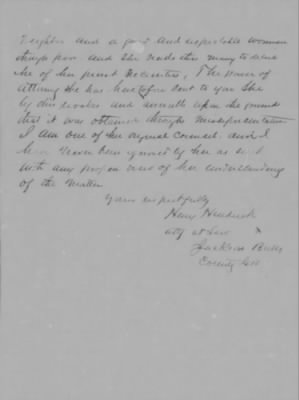 daughter and a good and respectable woman
though poor and She needs this money to relieve
her of her present necessities, The Power of
Attorney she has heretofore sent to you She
by this revokes and annulls upon the grounds
that it was obtained through misrepresentation
I am one of her original Counsel and I
have never been ignored by her as such
with any proper view of her understanding
of the matter
Yours respectfully
Henry Hendrick
atty at Law
Jackson Butts
County Ga